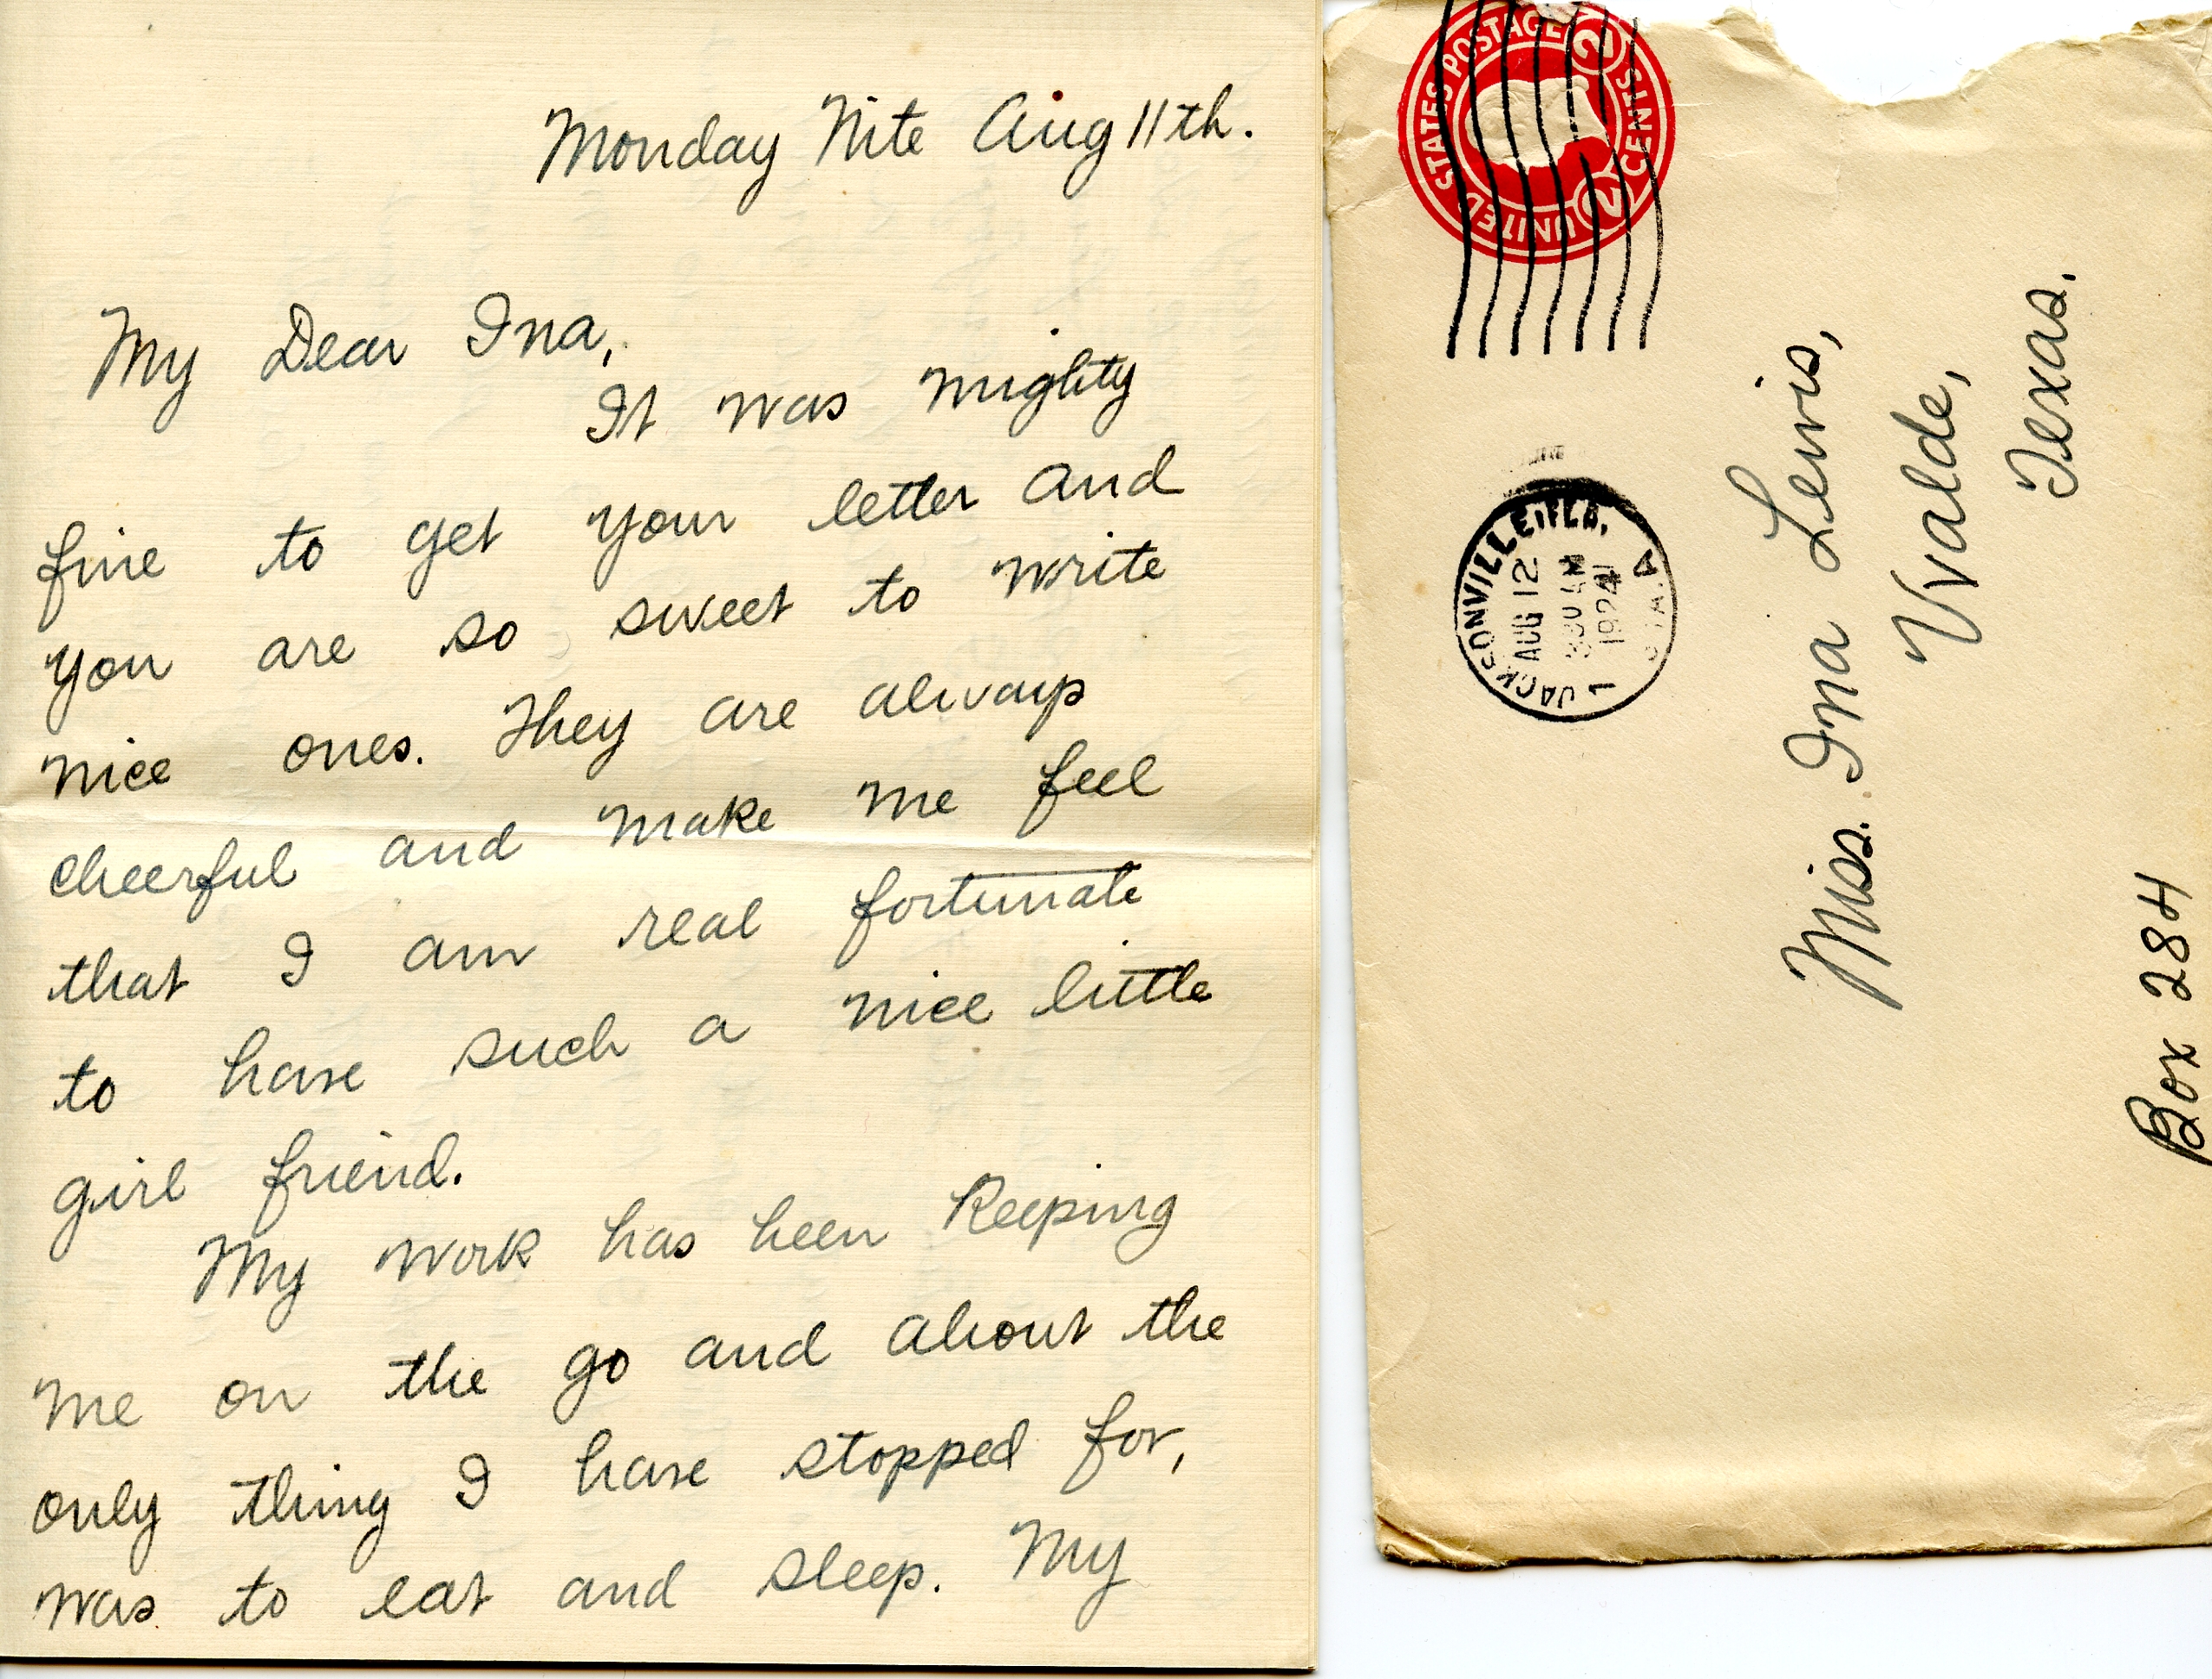 Monday Nite Aug 11th.
My Dear Ina,
It was mighty
fine to get your letter and
you are so sweet to write
nice ones. They are always
cheerful and make me feel
that I am real fortunate
to have such a nice little
girl friend.
My work has been keeping
me on the go and about the
only thing I have stopped for,
was to eat and sleep. My
UNITED STATES POSTAGE
2 CENTS 2
JACKSONVILLE, FLA.
AUG 12
330 AM
1924
1
Miss. Ina Lewis,
Uvalde,
Texas.
Box 284